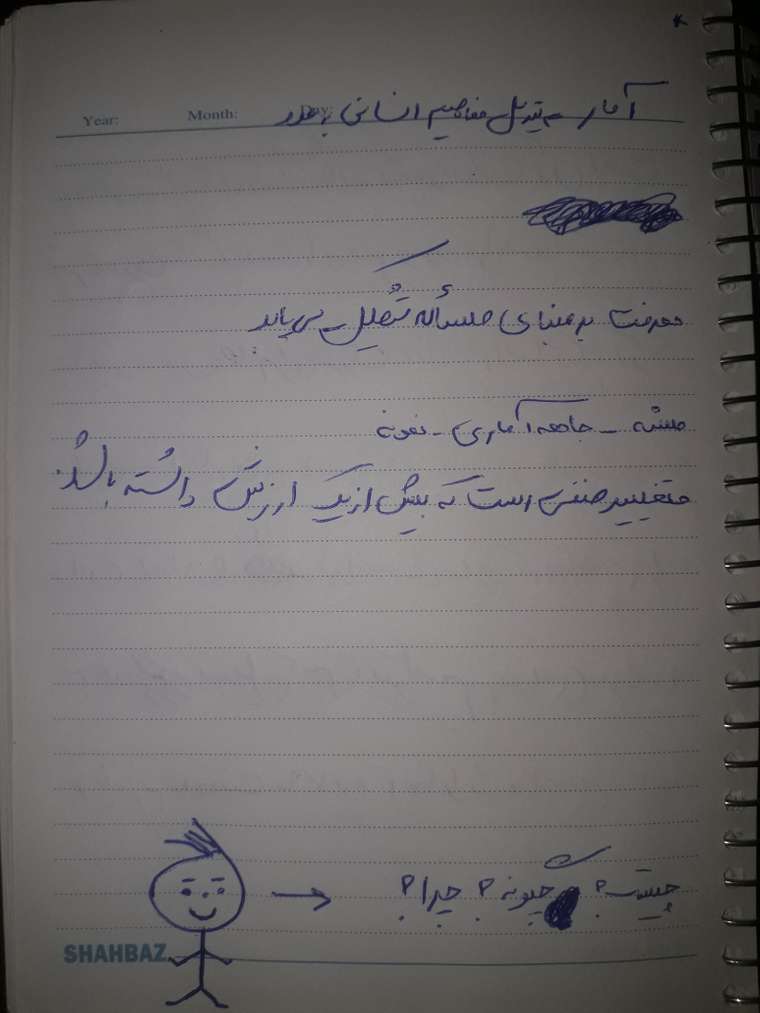 Year: Month: Day:
آمار → تبدیل مفاهیم انسانی به عدد
معرفت بر مبنای مسأله تشکیل می‌یابد
جامعه آماری - نمونه
متغییر صفتی است که بیش از یک ارزش داشته باشد.
چیست؟ چگونه؟ چرا؟
SHAHBAZ